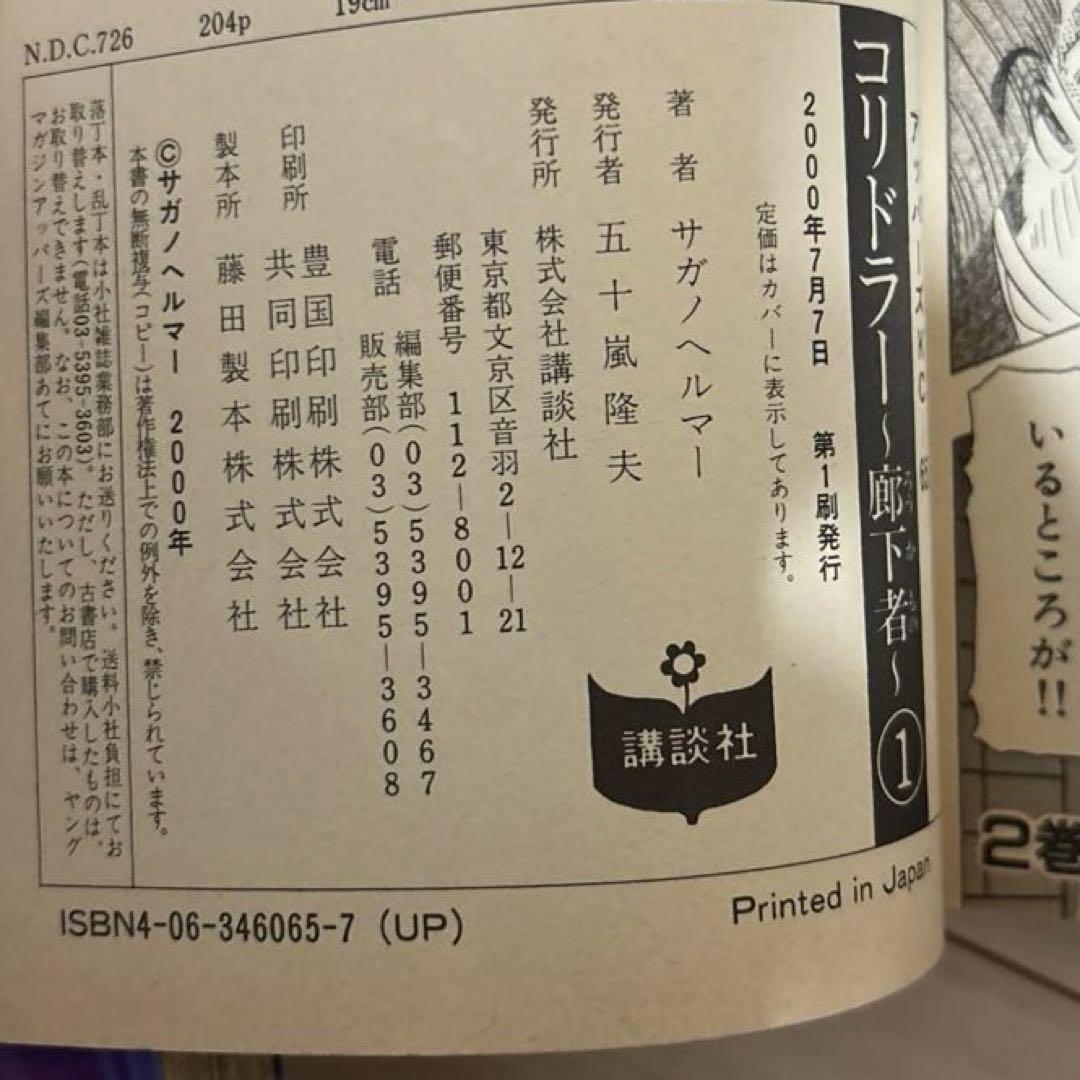 N.D.C.726 204p 19cm
コリドラー～廊下者～①
2000年7月7日 第1刷発行
定価はカバーに表示してあります。
著者 サガノヘルマー
発行者 五十嵐隆夫
発行所 株式会社講談社
東京都文京区音羽2―12―21
郵便番号 112―8001
電話 編集部(03)5395―3467
販売部(03)5395―3608
印刷所 豊国印刷株式会社
共同印刷株式会社
製本所 藤田製本株式会社
©サガノヘルマー 2000年
本書の無断複写(コピー)は著作権法上での例外を除き、禁じられています。
落丁本・乱丁本は小社雑誌業務部にお送りください。送料小社負担にてお
取り替えします(電話03-5395-3603)。ただし、古書店で購入したものは、
お取り替えできません。なお、この本についてのお問い合わせは、ヤング
マガジンアッパーズ編集部あてにお願いいたします。
講談社
ISBN4-06-346065-7 (UP)
Printed in Japan
いるところが!!
2巻